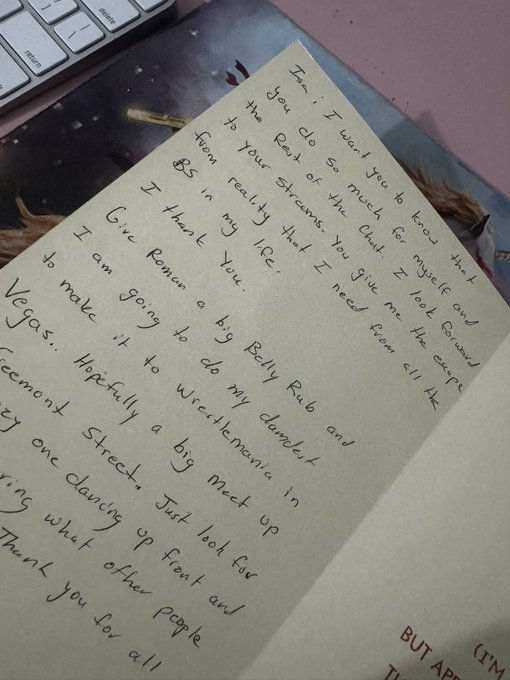 delete
return
Isa, I want you to know that
you do so much for myself and
the Rest of the Chat. I look forward
to your streams. You give me the escape
from reality that I need from all the
BS in my life.
I thank You.
Give Roman a big Belly Rub and
I am going to do my damdest
to make it to Wrestlemania in
Vegas.. Hopefully a big meet up
Street.. Just look for
one dancing up front and
what other people
Thank you for all
(I'M
BUT